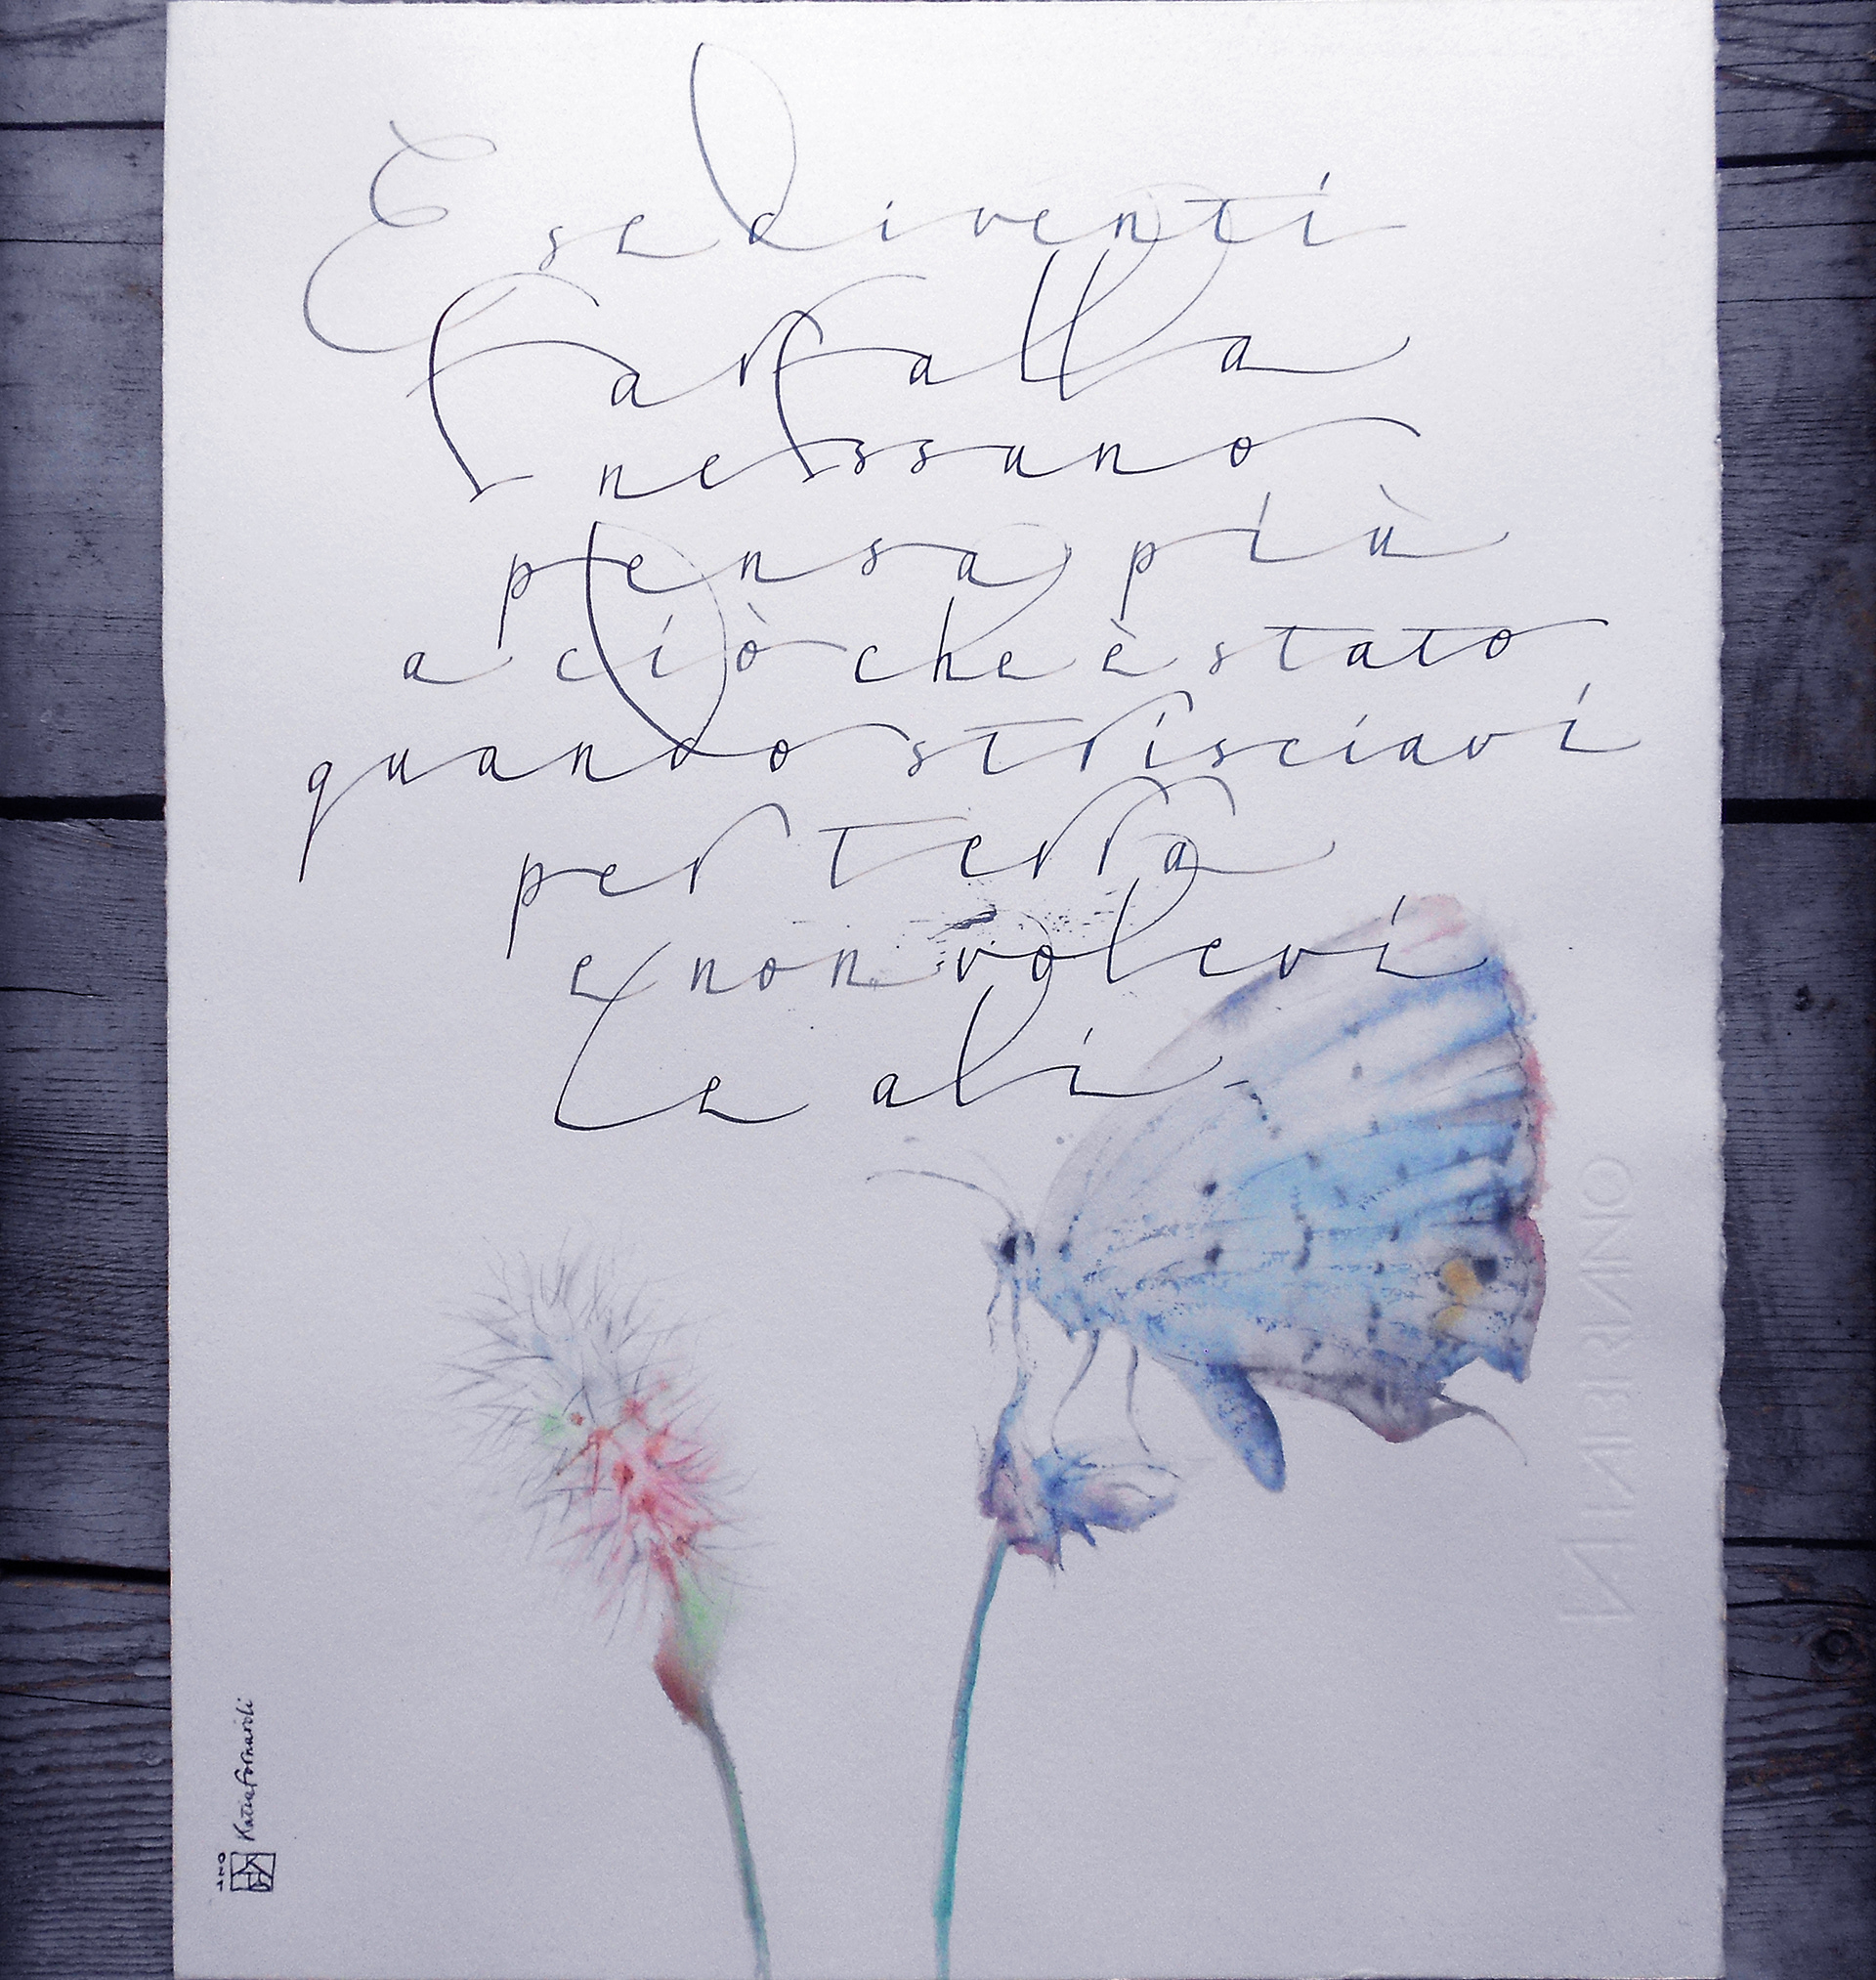 E se diventi
farfalla
nessuno
pensa più
a ciò che è stato
quando strisciavi
per terra
e non volevi
le ali.
FABRIANO
Katia Fornaroli